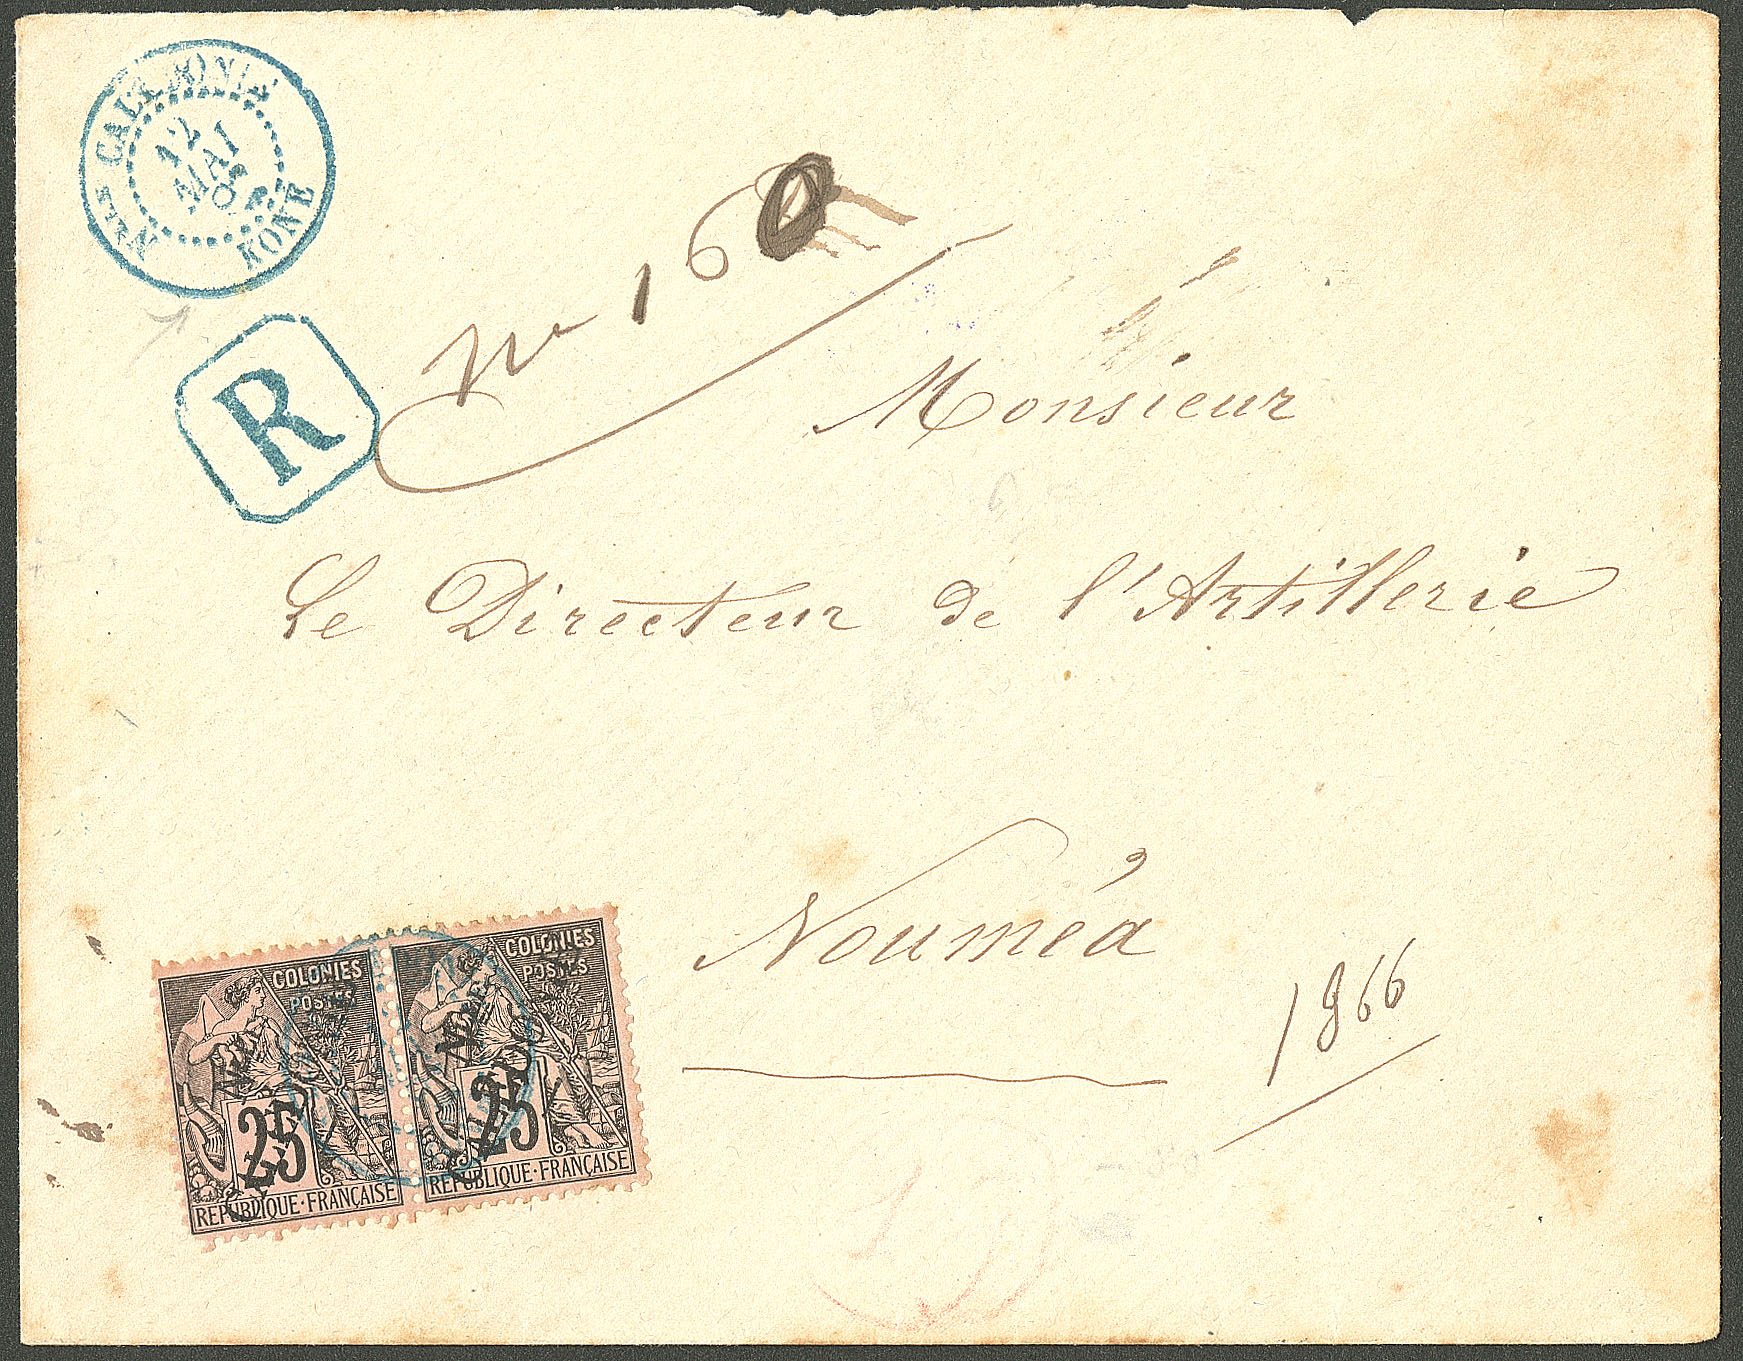 Nelle CALEDONIE
12
MAI
KONE
R
No 160
Monsieur
Le Directeur de l'Artillerie
Nouméa
1866
COLONIES
POSTES
25
REPUBLIQUE·FRANÇAISE
COLONIES
POSTES
25
REPUBLIQUE·FRANÇAISE